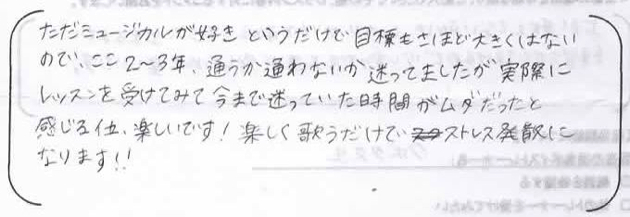 ただミュージカルが好き というだけで 目標もさほど大きくはない
ので、ここ2〜3年、通うか通わないか迷ってましたが 実際に
レッスンを受けてみて 今まで迷っていた時間がムダだったと
感じる位、楽しいです! 楽しく歌うだけで ストレス発散に
なります!!